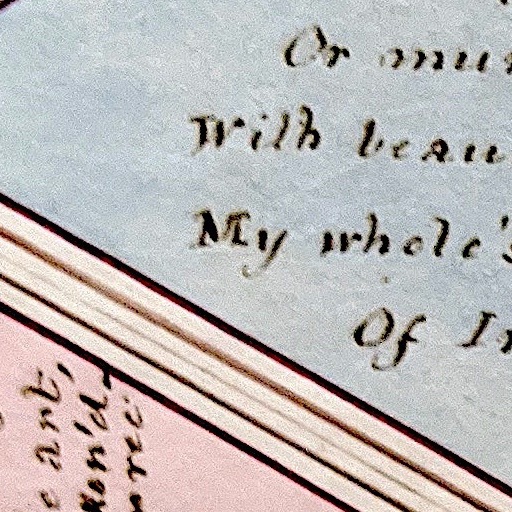 Or mus
With beau
My whole's
Of In
art,
ken'd
rec